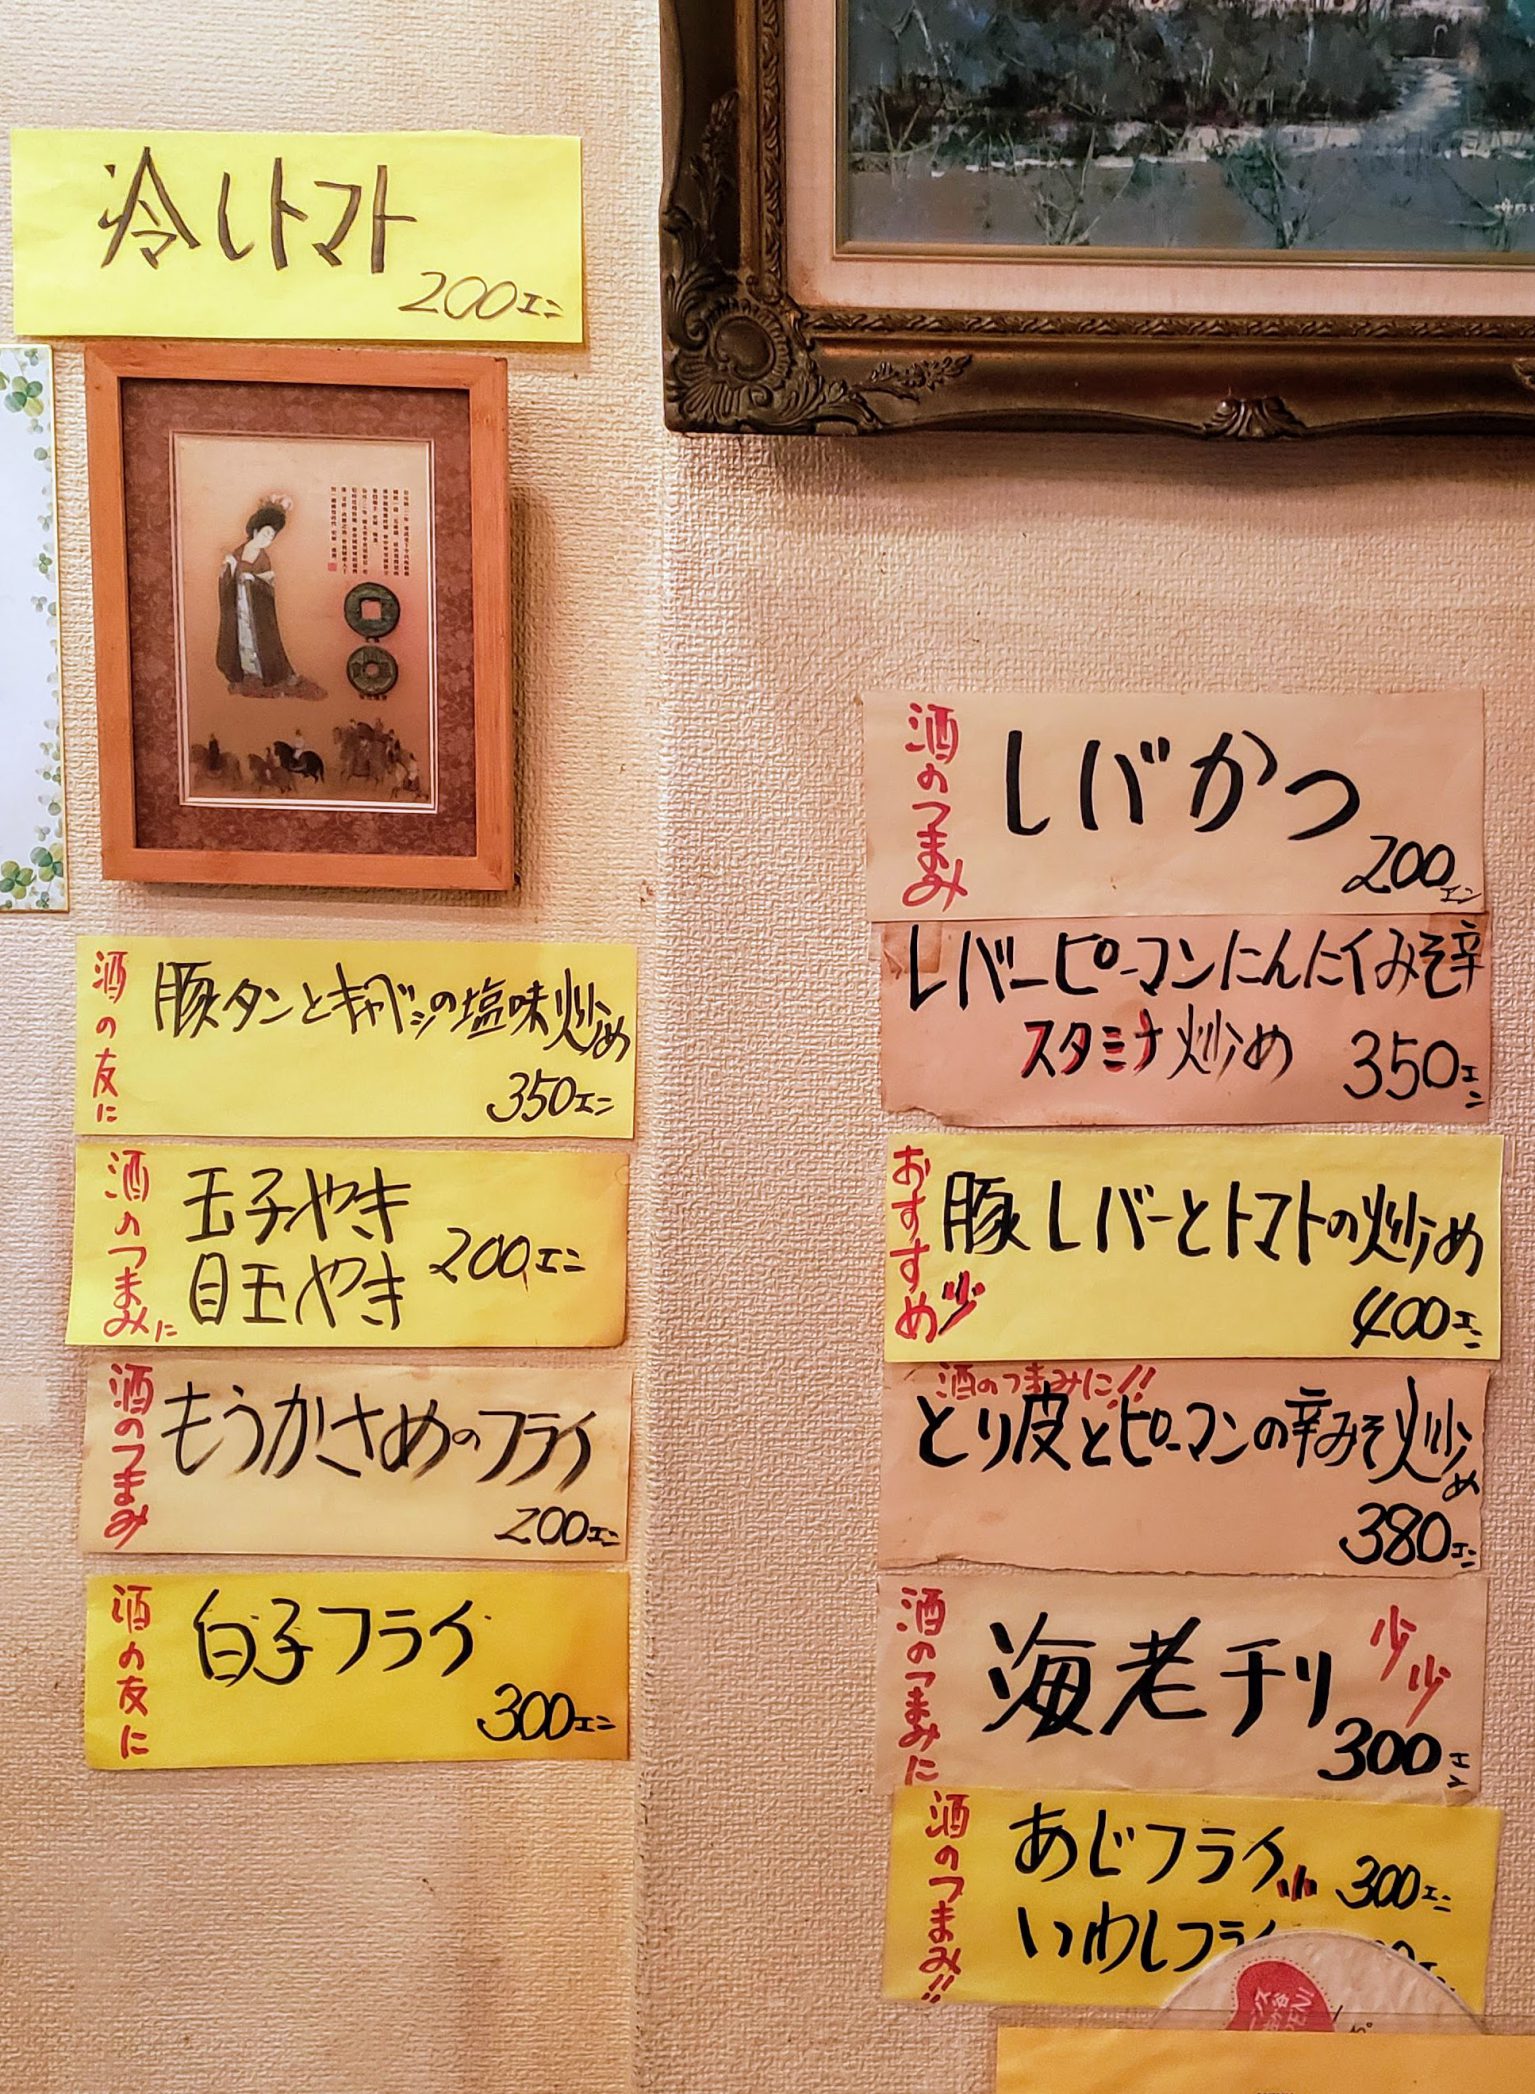 冷しトマト
200エン
酒の友に
豚タンとキャベジの塩味炒め
350エン
酒のつまみに
玉子やき
目玉やき
200エン
酒のつまみ
もうかさめのフライ
200エン
酒の友に
白子フライ
300エン
酒のつまみ
レバかつ
200エン
レバーピーマンにんにくみそ辛
スタミナ炒め
350エン
おすすめ
豚レバーとトマトの炒め
400エン
酒のつまみに!!
とり皮とピーマンの辛みそ炒め
380エン
酒のつまみに
海老チリ
300エン
酒のつまみ!!
あじフライ
300エン
いわしフライ